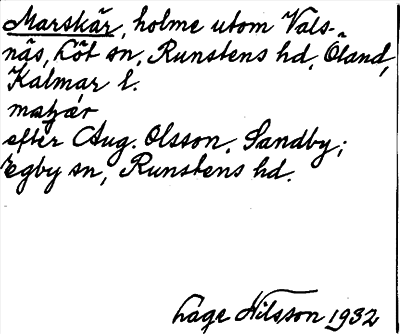 Marskär, holme utom Vals-
näs, Löt sn, Runstens hd, Öland,
Kalmar l.
efter Aug. Olsson, Sandby;
Egby sn, Runstens hd.
Lage Nilsson 1932